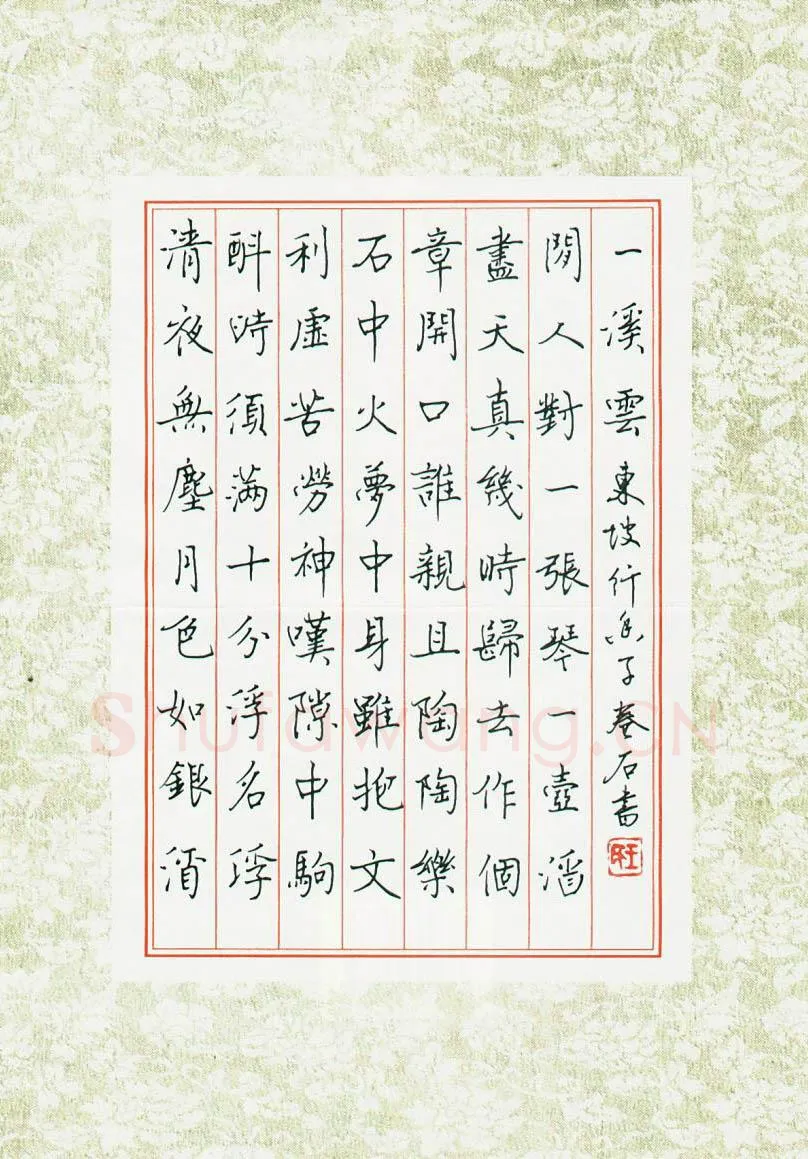 清夜無塵月色如銀酒
斟時須滿十分浮名浮
利虛苦勞神嘆隙中駒
石中火夢中身雖抱文
章開口誰親且陶陶樂
盡天真幾時歸去作個
閒人對一張琴一壺酒
一溪雲 東坡行香子 卷石書
旺
Shufawang.CN